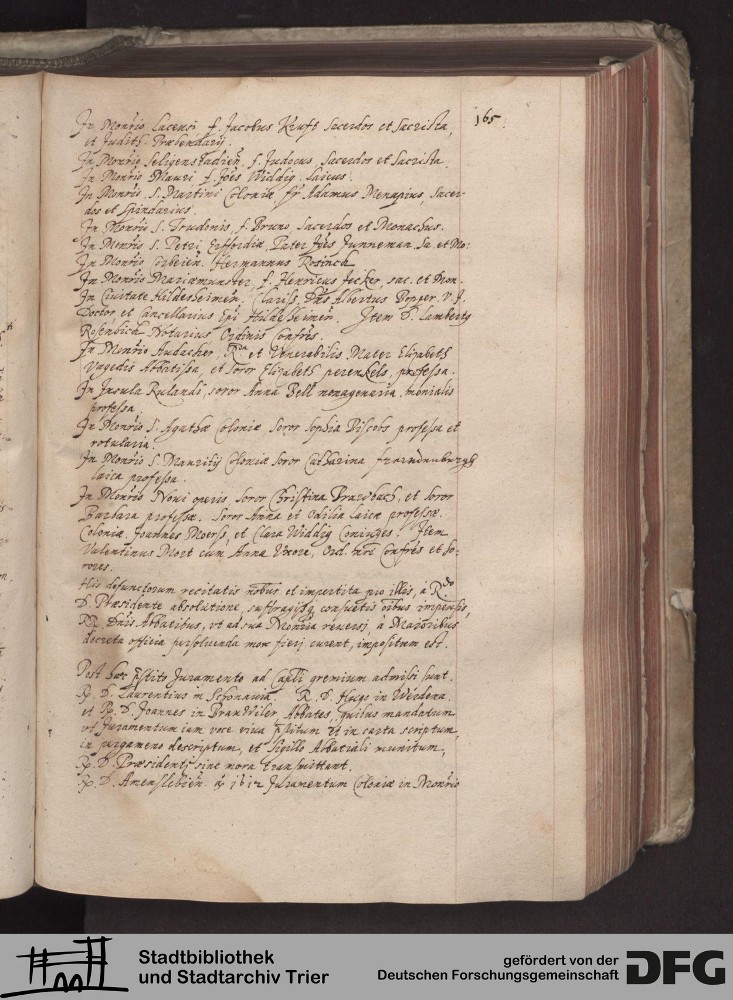 165.
In Monrio Lacensi f. Jacobus Kruft Sacerdos et Sacrista,
et Judith Præbendary.
In Monrio Seligenstadien. f. Judocus, Sacerdos et Sacrista.
In Monrio Mauri f. Joes Widdig Laicus.
In Monrio S. Martini Coloniæ fr. Adamus Menapius, Sacer-
dos et Spindarius.
In Monrio S. Trudonis, f. Bruno, Sacerdos et Monachus.
In Monrio S. Petri Erffordiæ, Pater Joes Junneman, Sa. et Mo:
In Monrio Corbeien. Hermannus Rosinck.
In Monrio Mariæmunster, f. Henricus Jecker, sac. et Mon.
In Civitate Hildesheimen. Clariss. Dns Albertus Popper, V. J.
Doctor et Cancellarius Epi Hildesheimen. Item D. Lambertg
Rosenbach Notarius Ordinis Confrēs.
In Monrio Andacher, Rda et Venerabilis Mater Elizabeth
Vngedis Abbatissa, et Soror Elizabeth perenkels, professa.
In Insula Rulandi, soror Anna Bell nonagenaria, monialis
professa.
In Monrio S. Agathæ Coloniæ Soror Sophia Piscobs professa et
rotularia.
In Monrio S. Mauritij Coloniæ Soror Catharina
laica professa.
In Monrio Noui operis, Soror Christina Brawbach, et Soror
Barbara professæ. Soror Anna et Odilia laicæ professæ.
Coloniæ, Joannes Moerss, et Clara Widdig Coniuges. Item
Valentinus Mort cum Anna Vxore, Ord. nri Confrēs et So-
rores.
His defunctorum recitatis nōbus, et impertita pio illis, a Rdo
D. Præsidente absolutione, suffragijsq consuetis oībus impensis,
RR. Dnis Abbatibus, vt ad sua Monria reuersi, à Maioribus
decreta officia persoluenda mox fieri curent, impositum est.
Post hæc pstito Juramento ad Capli gremium admissi sunt.
R. D. Laurentius in Schonauia. R. D. Hugo in Werdena.
et R. D. Joannes in Brauwiler Abbates, quibus mandatum
vt Juramentum iam voce viua pstitum et in carta scriptum,
in pergameno descriptum, et Sigillo Abbatiali munitum,
R. D. Præsidenti sine mora transmittant.
R. D. Amenslebien. q 1612 Juramentum Coloniæ in Monrio
Stadtbibliothek
und Stadtarchiv Trier
gefördert von der
Deutschen Forschungsgemeinschaft
DFG